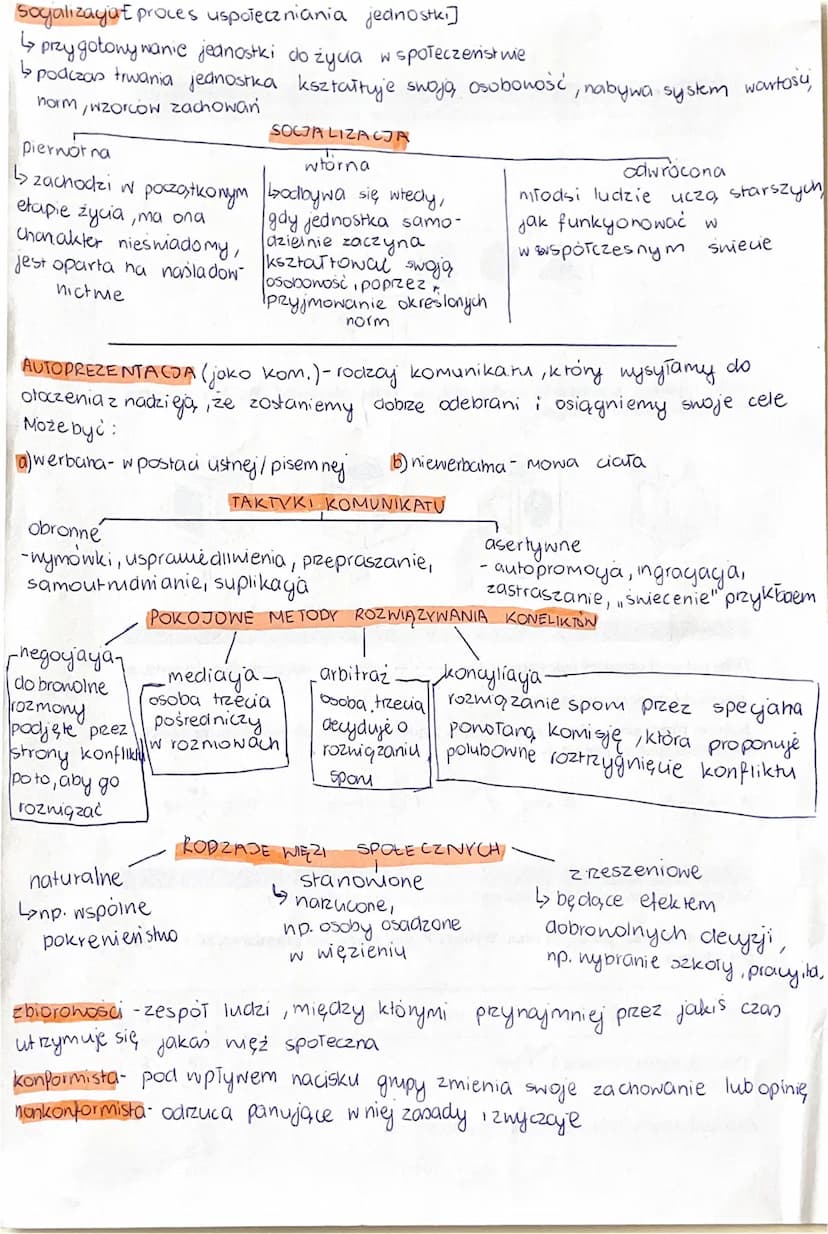 socjalizacja [proces uspołeczniania jednostki]
↳ przygotowywanie jednostki do życia w społeczeństwie
↳ podczas trwania jednostka kształtuje swoją osobowość, nabywa system wartości,
norm, wzorców zachowań
SOCJALIZACJA
pierwotna
↳ zachodzi w początkowym
etapie życia, ma ona
charakter nieświadomy,
jest oparta na naśladow-
nictwie
wtórna
↳ odbywa się wtedy,
gdy jednostka samo-
dzielnie zaczyna
kształtować swoją
osobowość, poprzez
przyjmowanie określonych
norm
odwrócona
młodsi ludzie uczą starszych,
jak funkcjonować w
współczesnym świecie
AUTOPREZENTACJA (jako kom.) - rodzaj komunikatu, który wysyłamy do
otoczenia z nadzieją, że zostaniemy dobrze odebrani i osiągniemy swoje cele
Może być:
a) werbalna - w postaci ustnej/pisemnej b) niewerbalna - mowa ciała
TAKTYKI KOMUNIKATU
obronne
- wymówki, usprawiedliwienia, przepraszanie,
samoutrudnianie, suplikacja
asertywne
- autopromocja, ingracjacja,
zastraszanie, „świecenie" przykładem
POKOJOWE METODY ROZWIĄZYWANIA KONFLIKTÓW
negocjacja
dobrowolne
rozmowy
podjęte przez
strony konfliktu
po to, aby go
rozwiązać
mediacja
osoba trzecia
pośredniczy
w rozmowach
arbitraż
osoba trzecia
decyduje o
rozwiązaniu
sporu
koncyliacja
rozwiązanie sporu przez specjalną
powołaną komisję, która proponuje
polubowne roztrzygnięcie konfliktu
RODZAJE WIĘZI SPOŁECZNYCH
naturalne
↳ np. wspólne
pokrewieństwo
stanowione
↳ narzucone,
np. osoby osadzone
w więzieniu
zrzeszeniowe
↳ będące efektem
dobrowolnych decyzji,
np. wybranie szkoły, pracy, itd.
zbiorowości - zespół ludzi, między którymi przynajmniej przez jakiś czas
utrzymuje się jakaś więź społeczna
konformista - pod wpływem nacisku grupy zmienia swoje zachowanie lub opinię
nonkonformista - odrzuca panujące w niej zasady i zwyczaje